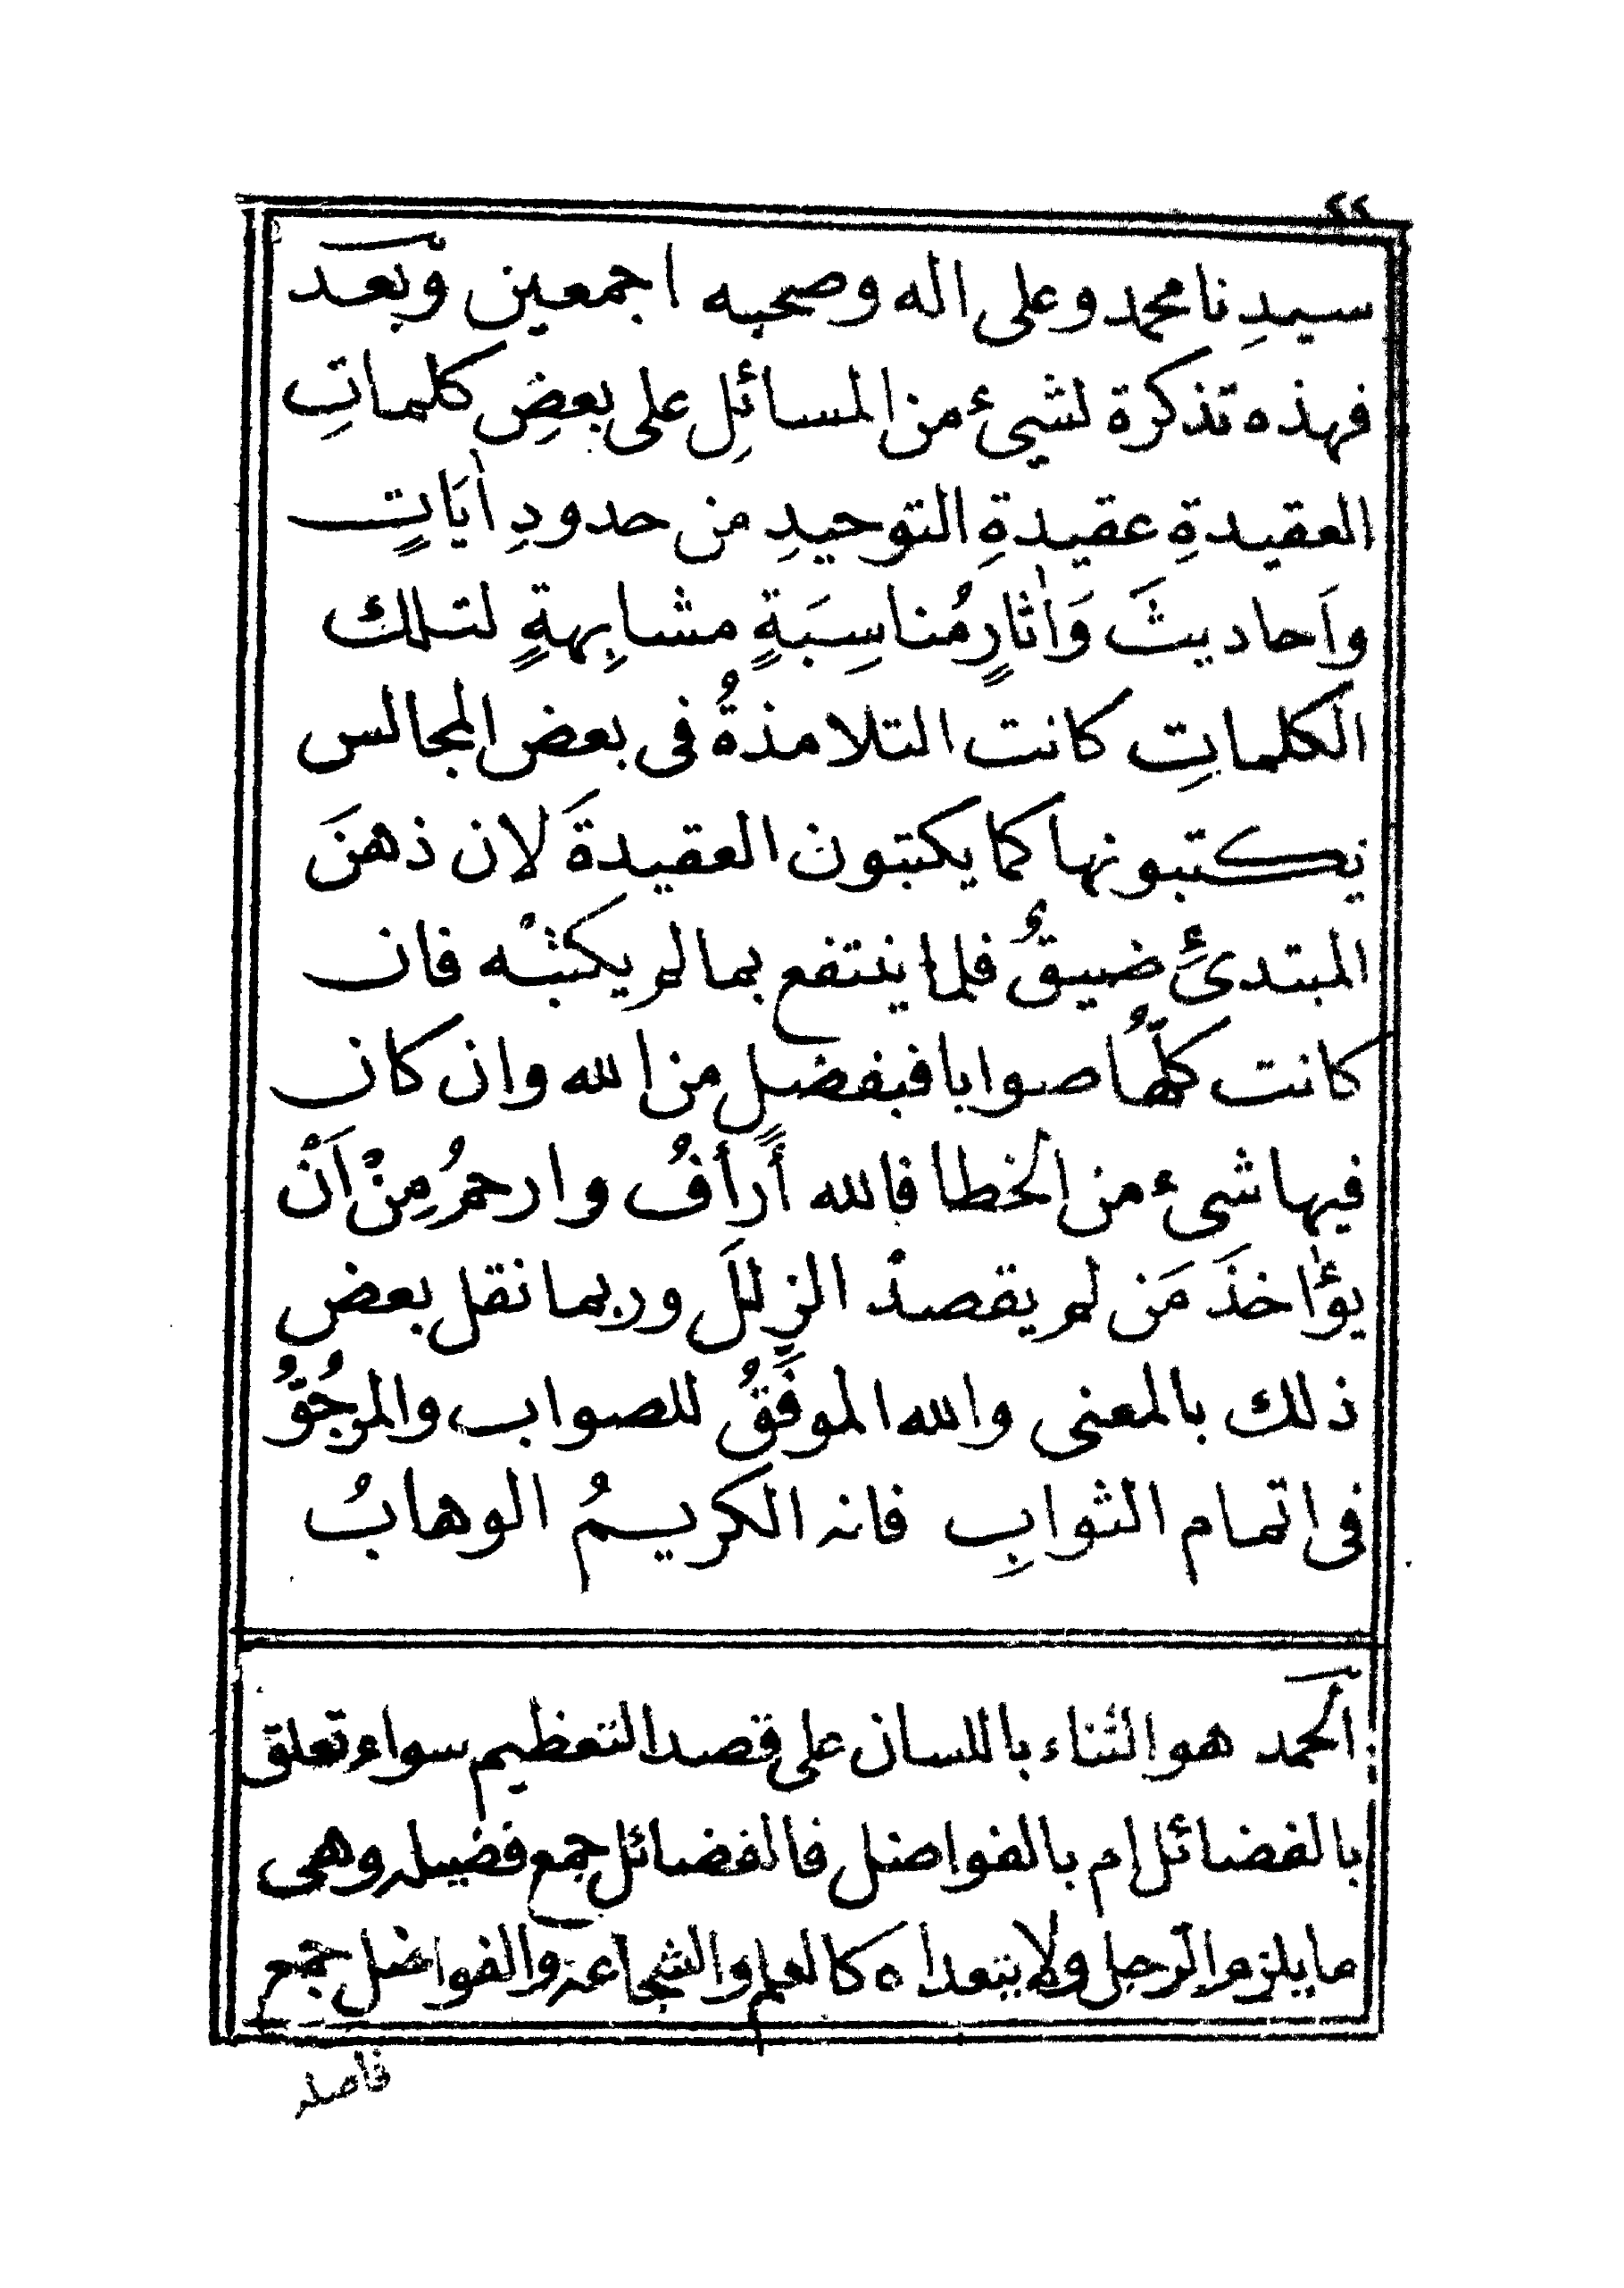 ٢٢
سيدِنا محمد وعلى اله وصحبه اجمعين وبعد
فهذه تذكرة لشيئ من المسائلِ على بعضِ كلماتِ
العقيدةِ عقيدةِ التوحيدِ من حدودِ اٰيَاتٍ
واَحاديثَ وَاٰثارٍ مُناسِبَةٍ مشابِهةٍ لتلك
الكلماتِ كانت التلامذةُ فى بعض المجالس
يكتبونها كما يكتبون العقيدةَ لان ذهنَ
المبتدئِ ضيقٌ فلما ينتفع بما لم يكتبْه فان
كانت كلُّها صوابا فبفضلٍ من الله وان كان
فيها شىء من الخطا فالله أرأفُ وارحمُ مِنْ اَنْ
يؤٰاخذَ مَن لم يقصدْ الزللَ وربما نقل بعض
ذلك بالمعنى والله الموفِّقُ للصواب والمرجُوُّ
فى اتمام الثوابِ فانه الكريمُ الوهابُ
اَلحمد هو الثناء باللسان على قصد التعظيم سواء تعلق
بالفضائل ام بالفواضل فالفضائل جمع فضيله وهى
ما يلزم الرجل ولا يتعداه كالعلم والشجاعة والفواضل جمع
فاصله